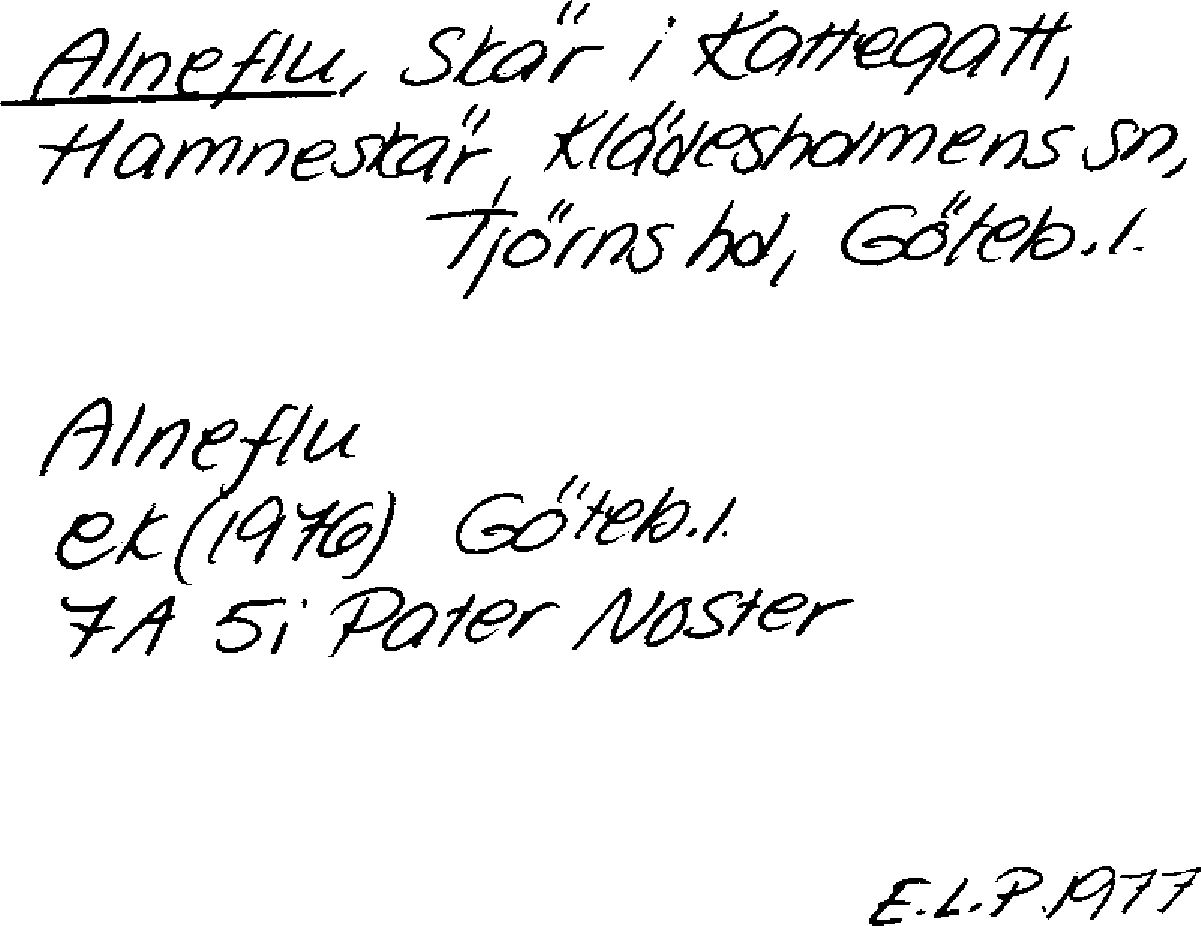 Alneflu, Skär i Kattegatt,
Hamneskär, Klädesholmens sn,
Tjörns hd, Göteb.l.
Alneflu
ek (1976) Göteb.l.
7A 5i Pater Noster
E.L.P. 1977